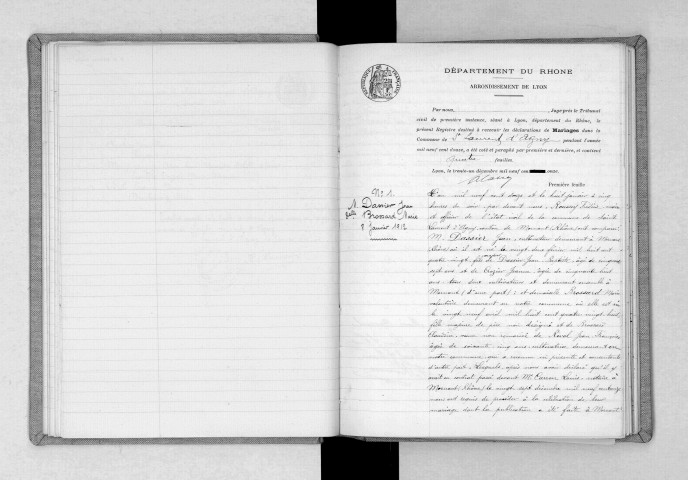 DÉPARTEMENT DU RHONE
ARRONDISSEMENT DE LYON
Par nous, Juge près le Tribunal
civil de première instance, séant à Lyon, département du Rhône, le
présent Registre destiné à recevoir les déclarations de Mariages dans la
Commune de St Laurent d'Agny pendant l'année
mil neuf cent douze, a été coté et paraphé par première et dernière, et contient
quatre feuillets.
Lyon, le trente-un décembre mil neuf cent onze.
Première feuille
No 1.
M. Dassier Jean
& Brossard Marie
8 Janvier 1912
L'an mil neuf cent douze et le huit janvier à cinq
heures du soir, par devant nous, maire
et officier de l'état civil de la commune de Saint
Laurent d'Agny, canton de Mornant, Rhône, ont comparu
M. Dassier Jean, cultivateur demeurant à Mornant
Rhône, où il est né le vingt deux février mil huit cent
quatre vingt, fils majeur de Dassier Jean âgé de cinquante
sept ans et de Jeanne, âgée de cinquante huit
ans, tous deux cultivateurs et demeurant ensemble à
Mornant, d'une part; et demoiselle Brossard Marie
demeurant en notre commune où elle est née
le vingt neuf avril mil huit cent quatre vingt huit,
fille majeure de père non désigné et de Brossard
Jean François
âgé de soixante cinq ans, cultivateur, demeurant en
notre commune, ici présente et consentante
d'autre part. Lesquels, après nous avoir déclaré qu'il y
avait un contrat passé devant Me Louis, notaire à
Mornant, Rhône, le vingt sept décembre mil neuf cent onze
nous ont requis de procéder à la célébration de leur
mariage dont la publication a été faite à Mornant